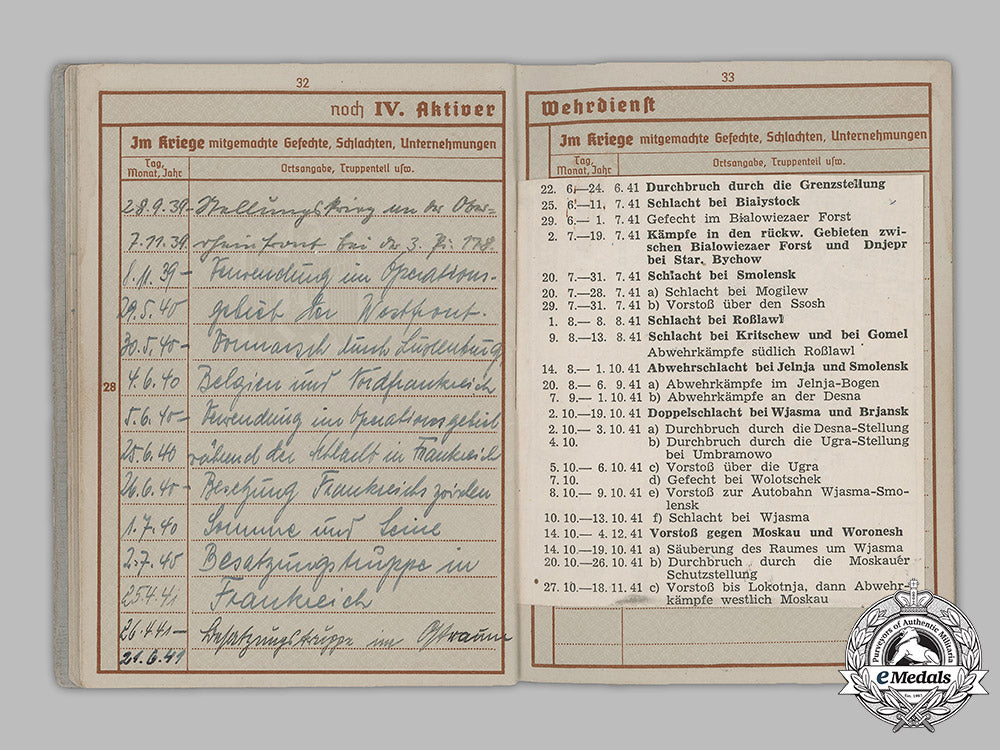 32
noch IV. Aktiver
Im Kriege mitgemachte Gefechte, Schlachten, Unternehmungen
Tag, Monat, Jahr
Ortsangabe, Truppenteil usw.
28.9.39- Stellungskrieg an der Ober-
7.11.39 rheinfront bei der 3. Pi. 178.
8.11.39- Verwendung im Operations-
29.5.40 gebiet der Westfront.
30.5.40- Vormarsch durch Luxemburg
4.6.40 Belgien und Nordfrankreich
5.6.40- Verwendung im Operationsgebiet
25.6.40 während der Schlacht in Frankreich
26.6.40- Besetzung Frankreichs zwischen
1.7.40 Somme und Seine
2.7.40 Besatzungstruppe in
25.4.41 Frankreich
26.4.41- Besatzungstruppe im Ostraume
21.6.41
28
33
Wehrdienst
Im Kriege mitgemachte Gefechte, Schlachten, Unternehmungen
Tag, Monat, Jahr
Ortsangabe, Truppenteil usw.
22. 6.—24. 6.41 Durchbruch durch die Grenzstellung
25. 6.—11. 7.41 Schlacht bei Bialystock
29. 6.— 1. 7.41 Gefecht im Bialowiezaer Forst
2. 7.—19. 7.41 Kämpfe in den rückw. Gebieten zwi-
schen Bialowiezaer Forst und Dnjepr
bei Star. Bychow
20. 7.—31. 7.41 Schlacht bei Smolensk
20. 7.—28. 7.41 a) Schlacht bei Mogilew
29. 7.—31. 7.41 b) Vorstoß über den Ssosh
1. 8.— 8. 8.41 Schlacht bei Roßlawl
9. 8.—13. 8.41 Schlacht bei Kritschew und bei Gomel
Abwehrkämpfe südlich Roßlawl
14. 8.— 1.10.41 Abwehrschlacht bei Jelnja und Smolensk
20. 8.— 6. 9.41 a) Abwehrkämpfe im Jelnja-Bogen
7. 9.— 1.10.41 b) Abwehrkämpfe an der Desna
2.10.—19.10.41 Doppelschlacht bei Wjasma und Brjansk
2.10.— 3.10.41 a) Durchbruch durch die Desna-Stellung
4.10. b) Durchbruch durch die Ugra-Stellung
bei Umbramowo
5.10.— 6.10.41 c) Vorstoß über die Ugra
7.10. d) Gefecht bei Wolotschek
8.10.— 9.10.41 e) Vorstoß zur Autobahn Wjasma-Smo-
lensk
10.10.—13.10.41 f) Schlacht bei Wjasma
14.10.— 4.12.41 Vorstoß gegen Moskau und Woronesh
14.10.—19.10.41 a) Säuberung des Raumes um Wjasma
20.10.—26.10.41 b) Durchbruch durch die Moskauer
Schutzstellung
27.10.—18.11.41 c) Vorstoß bis Lokotnja, dann Abwehr-
kämpfe westlich Moskau
Purveyors of Authentic Militaria
eMedals